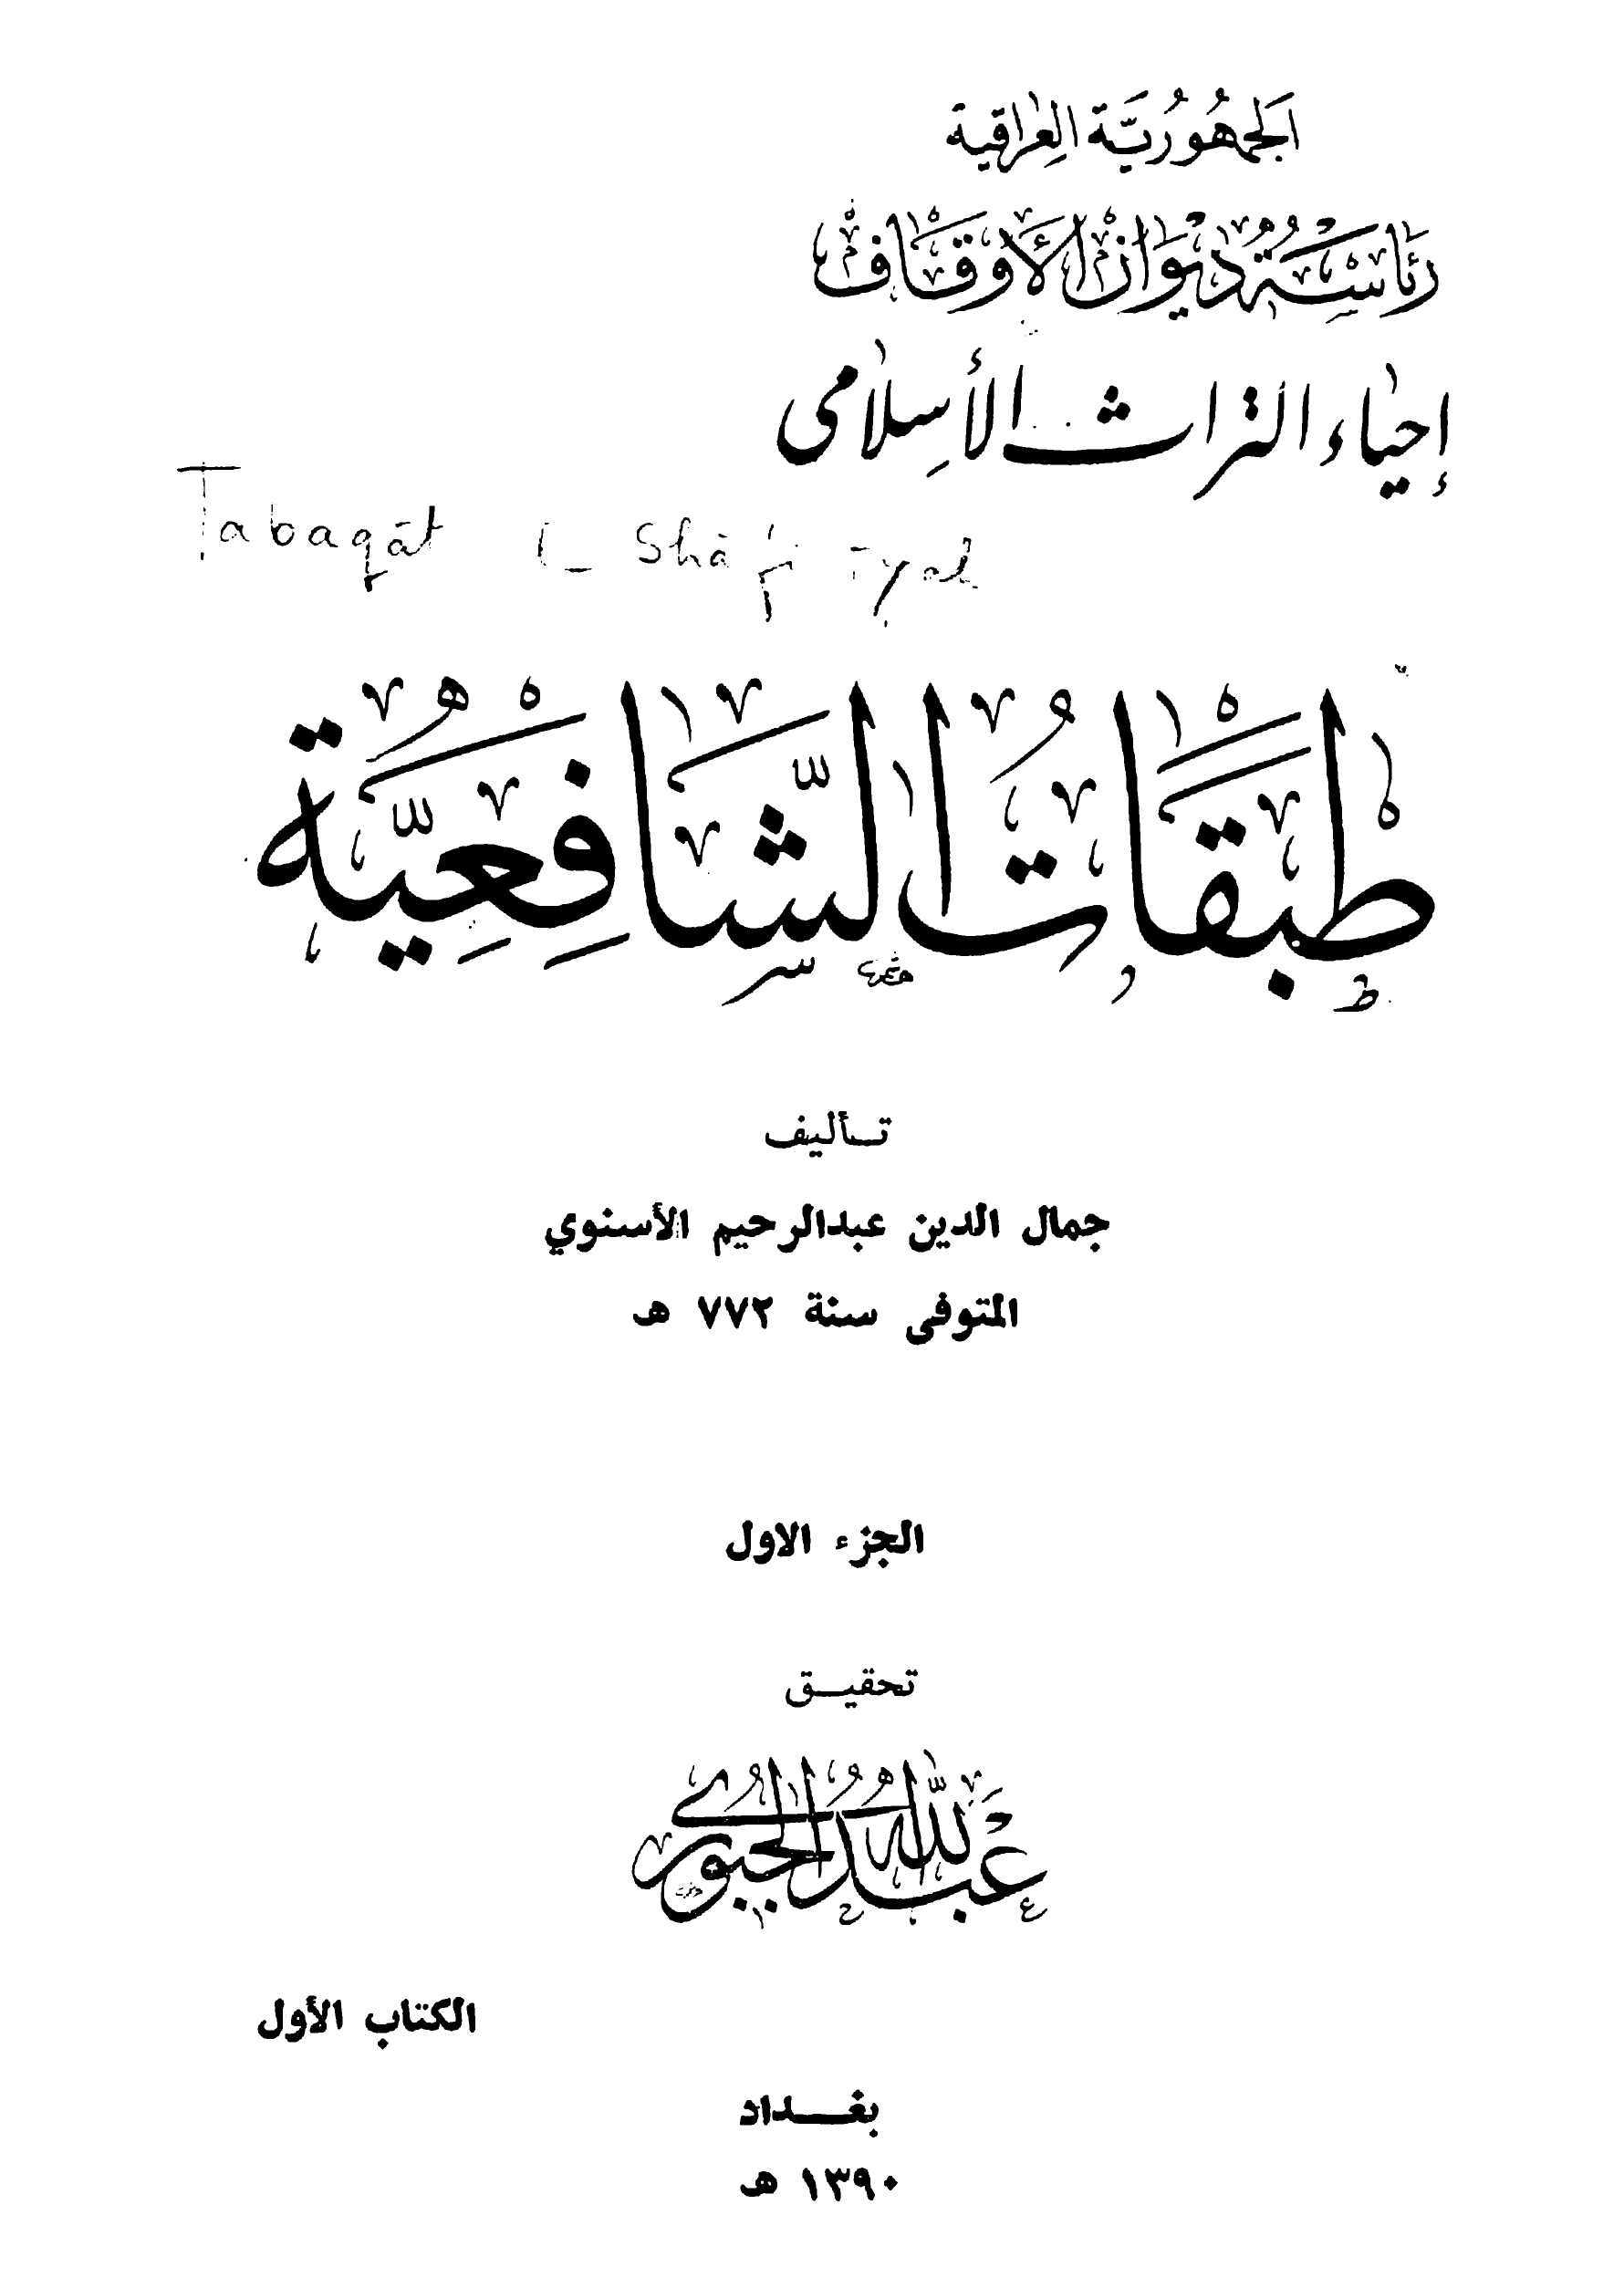 الجَمهُورُيَّة العِراقية
رئاسَة ديوَان الأوقاف
إحياء التراث الأسِلامى
Tabaqāt l_ Shāfi'īyah
طَبَقَاتُ الشَّافِعِيَّة
تأليف
جمال الدين عبدالرحيم الأسنوي
المتوفى سنة ٧٧٢ هـ
الجزء الاول
تحقيق
عَبدُ اللّٰه الجُبُورى
الكتاب الأول
بغداد
١٣٩٠ هـ